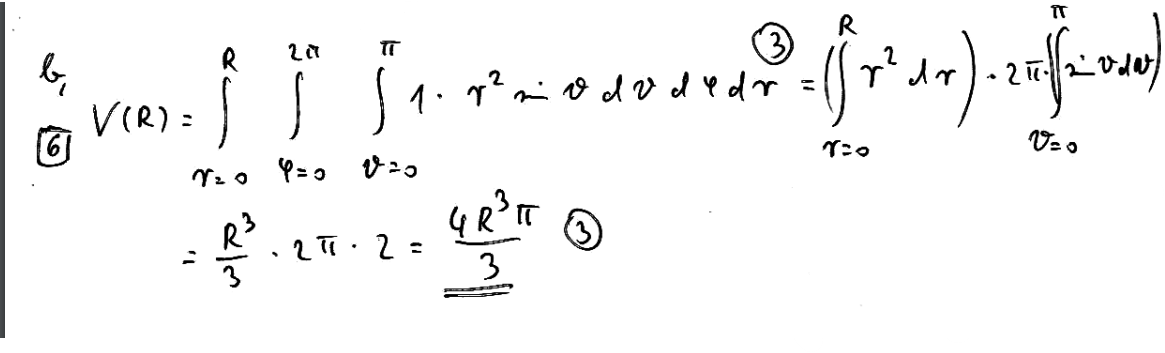 b, V(R) = ∫_{r=0}^{R} ∫_{φ=0}^{2π} ∫_{ϑ=0}^{π} 1 · r² sin ϑ dϑ dφ dr =③ (∫_{r=0}^{R} r² dr) · 2π · (∫_{ϑ=0}^{π} sin ϑ dϑ)
6
= R³/3 · 2π · 2 = 4R³π/3 ③